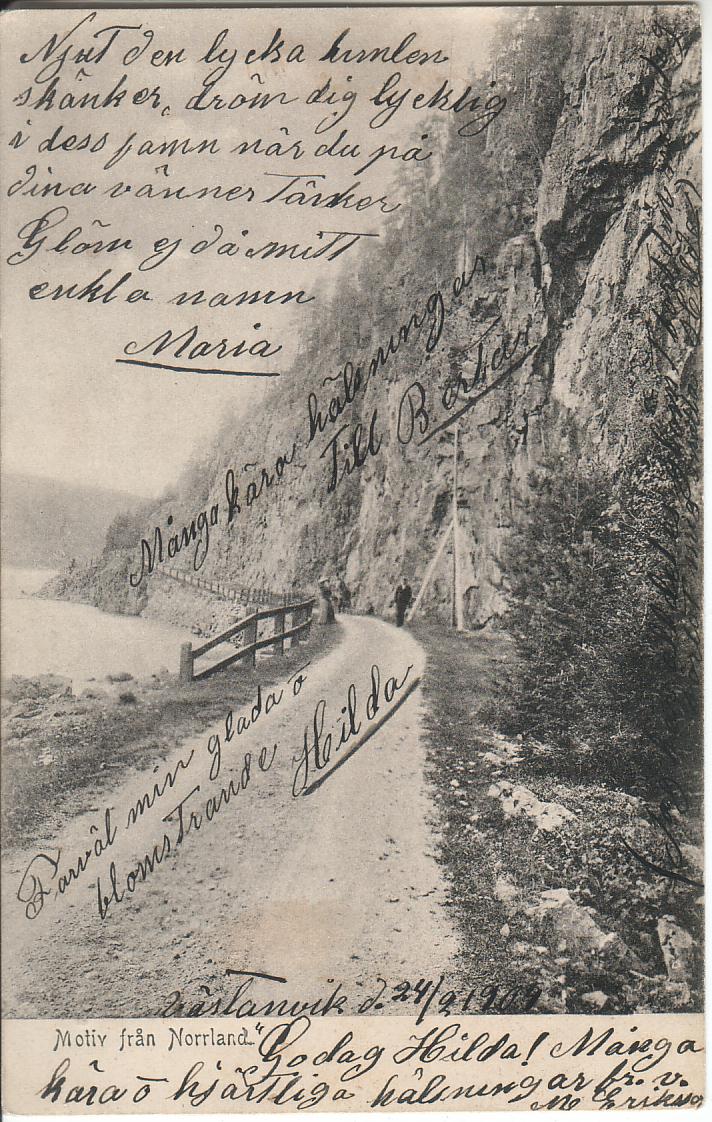 Njut den lycka himlen
skänker, dröm dig lycklig
i dess famn när du på
dina vänner tänker
Glöm ej då mitt
enkla namn
Maria
Många kära hälsningar
Till Bertar
Farväl min glada o
blomstrande Hilda
Västanvik d. 24/2 1909
Motiv från Norrland.
Godag Hilda! Många
kära o hjärtliga hälsningar fr. v.
M Erikso